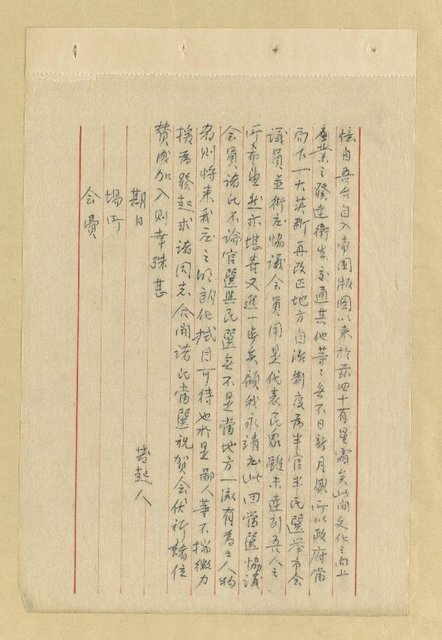 惟自吾台自入帝國版圖以來於茲四十有星霜矣此間文化之向上
產業之發達衛生交通其他等々無不日新月盛所以政府當
局下一大英斷再改正地方自治制度為半官半民選舉市會
議員並街庄協議會員用是代表民眾雖未達到吾人之
所希望然亦堪喜又進一步矣顧我永靖庄此回當選協議
會員諸氏不論官選與民選無不是當地方一流有為之人物
者則將來我庄之明朗化拭目可待也於是鄙人等不揣微力
擬為發起求諸同志合開諸氏當選祝賀會伏祈諸位
贊成加入則幸殊甚
期日
場所
會費
發起人